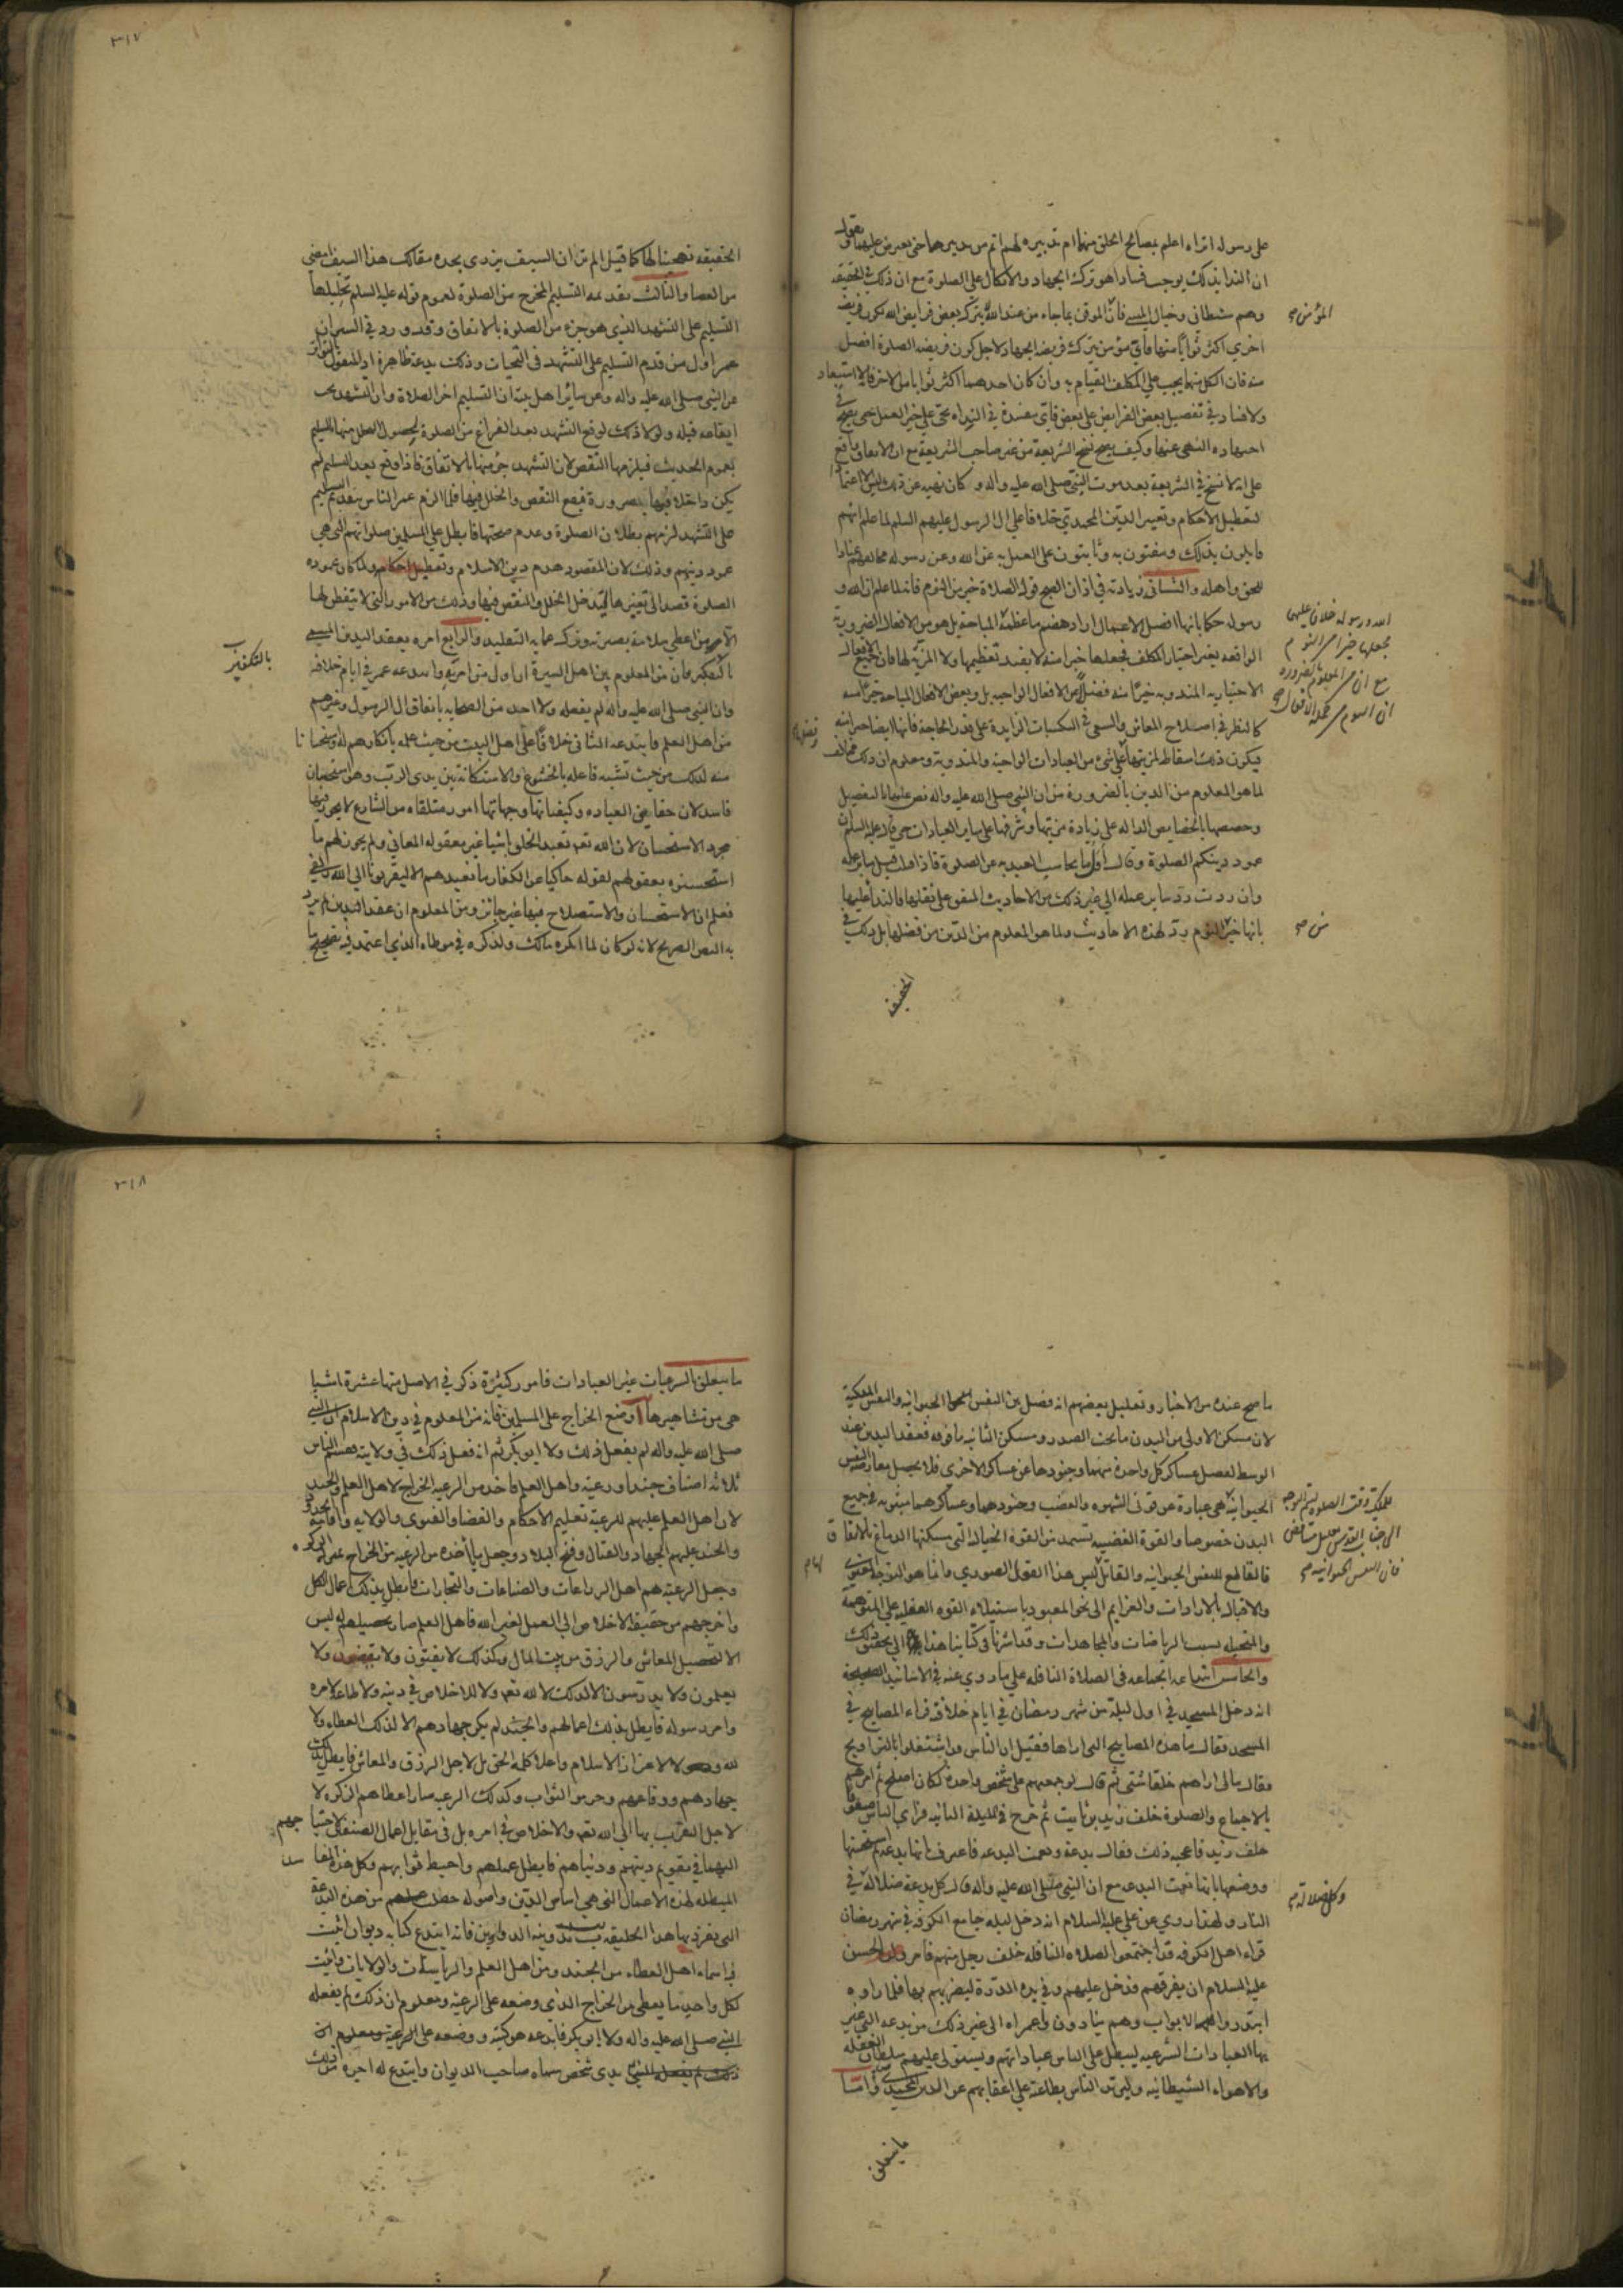 على رسوله اتراه اعلم بمصالح الخلق منهما ام تدبيره لهم اتم من تدبيرهما حتى يعترض عليهما ويقول
ان الندا بذلك يوجب فسادا هو ترك الجهاد والاتكال على الصلوة مع ان ذلك في الحقيقه
وهم شيطاني وخيال فان الموقن بما جاء من عند الله يترك بعض فرايض الله لكون فريضه
اخرى اكثر ثوابا منها فاي مؤمن يترك فريضه الجهاد لاجل كون فريضه الصلوة افضل
منه فان الكل منهما يجب على المكلف القيام به وان كان احدهما اكثر ثوابا من الاخر فلا استبعاد
ولا فساد في تفضيل بعض الفرايض على بعض فاي مفسدة في النداء بحي على خير العمل حتى يصح في
اجتهاده النهي عنها وكيف يصح نسخ الشريعة من غير صاحب الشريعة مع ان الاتفاق واقع
على انه لا نسخ في الشريعة بعد موت النبي صلى الله عليه واله وكان نهيه عن ذلك ليس الا اعتمادا
لتعطيل الاحكام وتغيير الدين المحمدي خلافا على ال الرسول عليهم السلم لما علم انهم
قايلون بذلك ومفتون به وثابتون على العمل به عن الله وعن رسوله مخالفهم عنادا
للحق واهله والثاني زيادته في اذان الصبح قوله الصلاة خير من النوم فانه لما علم ان الله و
رسوله حكما بانها افضل الاعمال اراد هضم ما عظمه المباحة بل هو من الافعال الضرورية
الواقعه بغير اختيار المكلف فجعلها خيرا منه لا يفيد تعظيمها ولا المزية لها فان جميع الافعال
الاختياريه المندوبه خيرا منه فضلا عن الافعال الواجبه بل وبعض الافعال المباحة خيرا منه
كالنظر في اصلاح المعاش والسعي في المكسبات الزايدة على قدر الحاجة فانها ايضا خير منه
فيكون ذلك اسقاطا لمزيتها على شيء من العبادات الواجبه والمندوبة ومعلوم ان ذلك مخالف
لما هو المعلوم من الدين بالضرورة من ان النبي صلى الله عليه واله نص عليها بالتفضيل
وخصصها بالخصايص الداله على زيادة مزيتها وشرفها على ساير العبادات حتى قال عليه السلم ان
عمود دينكم الصلوة وقال اول ما يحاسب العبد به عن الصلوة فاذا قبل قبل ساير عمله
وان ردت رد ساير عمله الى غير ذلك من الاحاديث المتفق على نقلها فالندا عليها
بانها خير النوم رد لهذه الاحاديث ولما هو المعلوم من الدين من فضلها بل ذلك في
الحقيقه
المؤمن صح
الله ورسوله خلافا عليهما
بجعلها خيرا من النوم
مع ان المعلوم بالضروره
ان النوم
من صح
٣١٧
الحقيقه تهجينا لها كما قيل الم تر ان السيف يزدى بحده مقالك هذا السيف امضى
من العصا والثالث تقديمه التسليم المخرج من الصلوة لعموم قوله عليه السلم تحليلها
التسليم على التشهد الذي هو جزء من الصلوة بالاتفاق وقد ورد في السير ان
عمر اول من قدم التسليم على التشهد في التحيات وذلك بدعة ظاهرة اذ المنقول بالتواتر
عن النبي صلى الله عليه واله وعن ساير اهل بيته ان التسليم اخر الصلاة وان التشهد يجب
ايقاعه قبله ولولا ذلك لوقع التشهد بعد الفراغ من الصلوة لحصول التحلل منها بالتسليم
بعموم الحديث فيلزمها النقص لان التشهد جزء منها بالاتفاق فاذا وقع بعد التسليم لم
يكن داخلا فيها بضرورة فيقع النقص والخلل فيها فلما الزم عمر الناس بتقديم التسليم
على التشهد لزمهم بطلان الصلوة وعدم صحتها فابطل على المسلمين صلواتهم التي هي
عمود دينهم وذلك لان المقصود هدم دين الاسلام وتعطيل احكامه ولما كان عموده
الصلوة قصد الى تغييرها ليدخل الخلل والنقص فيها وذلك من الامور التي لا يتفطن لها
الا من اعطي سلامة بصيرته وترك عماية التقليد والرابع امره بعقد اليدين
بالتكفير فان من المعلوم بين اهل السيرة ان اول من امر به وابتدعه عمر في ايام خلافه
وان النبي صلى الله عليه واله لم يفعله ولا احد من الصحابه باتفاق ال الرسول وغيرهم
من اهل العلم فابتدعه الثاني خلافا على اهل البيت من حيث علمه بانكارهم له واستحسانا
منه لذلك من حيث تشبه فاعله بالخشوع والاستكانة بين يدى الرب وهو استحسان
فاسد لان حقايق العباده وكيفياتها وجهاتها امور متلقاه من الشارع لا يجوز فيها
مجرد الاستحسان لان الله تعم تعبد الخلق باشيا غير معقوله المعاني ولم يجوز لهم ما
استحسنوه بعقولهم لقوله حاكيا عن الكفار ما نعبدهم الا ليقربونا الى الله زلفى
فعلم ان الاستحسان والاستصلاح فيها غير جائز ومن المعلوم ان عقد اليدين لم يرد
به النص الصريح لانه لو كان لما انكره مالك ولذكره في موطاه الذي اعتمد فيه تصحيح ما
بالتكفير
ما صح عنده من الاخبار وتعليل بعضهم انه فصل بين النفس الحيوانيه والنفس الملكية
لان مسكن الاولى من البدن ما تحت الصدر ومسكن الثانيه ما فوقه فعقد اليدين عند
الوسط لفصل عساكر كل واحدة منهما وجنودها عن عساكر الاخرى فلا يحصل معارضه النفس
الحيوانية هي عبارة عن قوتى الشهوه والغضب وجنودهما وعساكرهما مبثوثه في جميع
البدن خصوصا والقوة الغضبيه تستمد من القوة الخياليه التي مسكنها الدماغ بالاتفاق
فالقالع للنفس الحيوانيه والقاتل ليس هذا الفعل الصوري وانما هو التوجه المعنوي
والاقبال بالارادات والعزايم الى نحو المعبود باستيلاء القوه العقليه على المتوهمه
والمتخيله بسبب الرياضات والمجاهدات وقد اشرنا في كتابنا هذا الى تحقيق ذلك
والخامس ابتداعه الجماعه في الصلاة النافله على ما روي عنه في الاسانيد الصحيحه
انه دخل المسجد في اول ليلة من شهر رمضان في ايام خلافته فراء المصابيح في
المسجد فقال ما هذه المصابيح التي اراها فقيل ان الناس قد اشتغلوا بالتراويح
فقال مالي اراهم خلقا شتى ثم قال لو جمعهم على شخص واحد لكان اصلح ثم امرهم
بالاجماع والصلوة خلف زيد بن ثابت ثم خرج في الليلة الثانيه فراى الناس صفوفا
خلف زيد فاعجبه ذلك فقال بدعة ونعمت البدعه فاعترف بانها بدعه ثم استحسنها
ووصفها بانها نعمت البدعه مع ان النبي صلى الله عليه واله قال كل بدعة ضلالة في
النار ولهذا روي عن علي عليه السلام انه دخل ليله جامع الكوفه في شهر رمضان
فراء اهل الكوفه قد اجتمعوا لصلاه النافله خلف رجل منهم فامر ولده الحسن
عليه السلام ان يفرقهم فدخل عليهم وفي يده الدرة ليضربهم بها فلما راوه
ابتدروا الابواب وهم ينادون واعمراه الى غير ذلك من بدعه التي غير
بها العبادات الشرعيه ليبطل على الناس عباداتهم ويستولى عليهم سلطان الغفله
والاهواء الشيطانيه وليرتد الناس بطاعته على اعقابهم عن الدين المحمدي واما
ما يتعلق
للملكية وقت الصلوة
الى جناب القدس
فان النفس الحيوانيه صح
وكل ضلاله صح
٣١٨
ما يتعلق بالشرعيات غير العبادات فامور كثيرة ذكر في الاصل منها عشرة اشيا
هي من مشاهيرها ا وضع الخراج على المسلمين فانه من المعلوم في دين الاسلام ان النبي
صلى الله عليه واله لم يفعل ذلك ولا ابو بكر ثم انه فعل ذلك في ولايته فقسم الناس
ثلاثه اصناف جندا ورعية واهل العلم فاخذ من الرعيه الخراج لاهل العلم والجند
لان اهل العلم عليهم للرعية تعليم الاحكام والقضا والفتوى والولايه واقامة الحدود
والجند عليهم الجهاد والقتال وفتح البلاد وجعل ما يأخذه من الرعيه من الخراج
وجعل الرعيه هم اهل الزراعات والصناعات والتجارات فابطل بذلك اعمال الكل
واخرجهم من حقيقة الاخلاص الى العمل لغير الله فاهل العلم صار تحصيلهم له ليس
الا لتحصيل المعاش والرزق من بيت المال وكذلك لا يفتون ولا يقضون ولا
يعلمون ولا يدرسون الا لذلك لا لله تعم ولا للاخلاص في دينه ولا طاعه لامره
وامر رسوله فابطل بذلك اعمالهم والجند لم يكن جهادهم الا لذلك العطاء ولا
لله ولا لاعزاز الاسلام واعلاء كلمه الحق بل لاجل الرزق والمعاش فابطل بذلك
جهادهم ودفاعهم وحرموا الثواب وكذلك الرعيه صار اعطاهم الزكوه لا
لاجل التقرب بها الى الله تعم والاخلاص في امره بل في مقابل اعمال الصنفين لاحتياجهم
اليهما في تقويم دينهم ودنياهم فابطل عملهم واحبط ثوابهم وكل هذه المفاسد
المبطله لهذه الاعمال التي هي اساس الدين واصوله حصلت من هذه البدعة
التي تفرد بها هذا الخليفه ب تدوينه الدواوين فانه ابتدع كتابه ديوان اثبت
فيه اسماء اهل العطاء من الجند ومن اهل العلم والرياسات والولايات واثبت
لكل واحد ما يعطى من الخراج الذي وضعه على الرعيه ومعلوم ان ذلك لم يفعله
النبي صلى الله عليه واله ولا ابو بكر فابتدعه هو كتبه ووضعه على الرعية ومعلوم ان
ذلك لم يفعله النبي بدى شخص سماه صاحب الديوان وابتدع له اجرة من ذلك